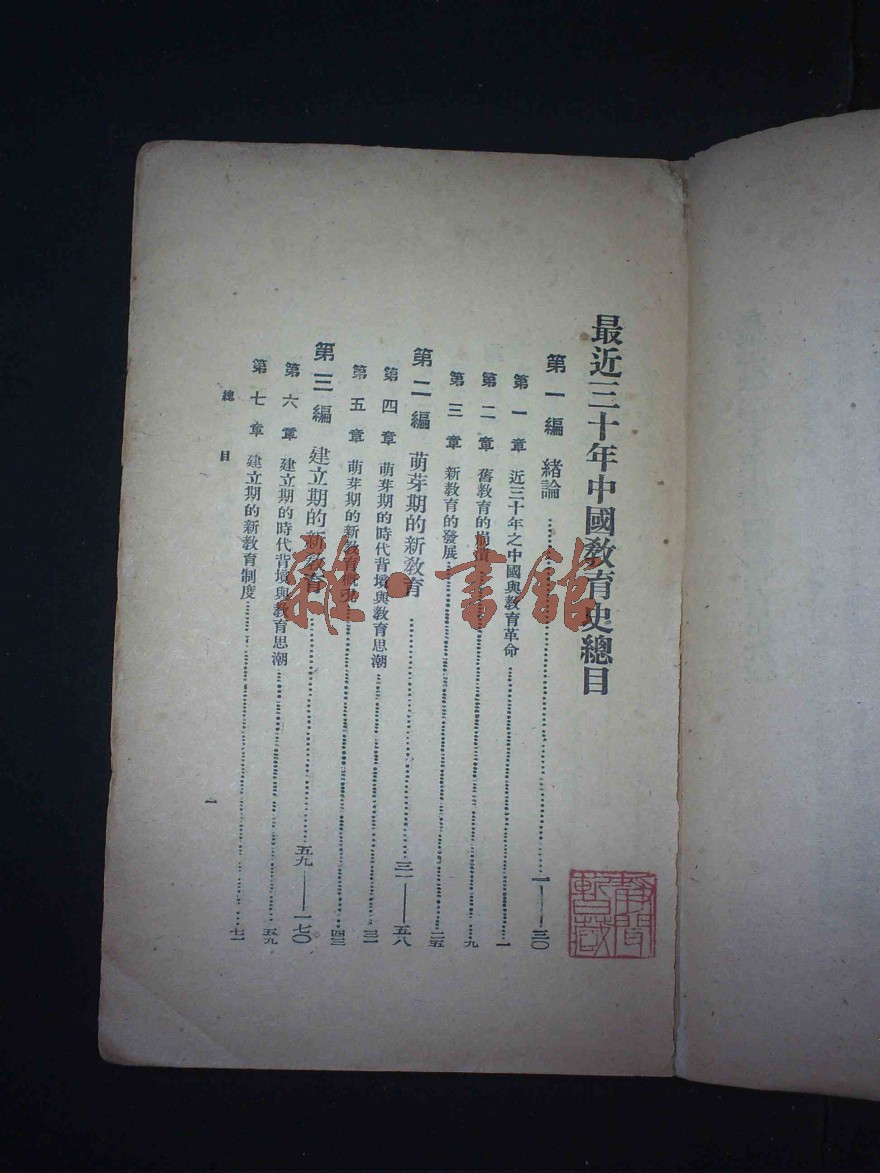 最近三十年中國教育史總目
第一編 緒論 一——三〇
第一章 近三十年之中國與教育革命 一
第二章 舊教育的崩潰 九
第三章 新教育的發展 二五
第二編 萌芽期的新教育 三一——五八
第四章 萌芽期的時代背境與教育思潮 三一
第五章 萌芽期的新教育概況 四三
第三編 建立期的新教育 五九——一七〇
第六章 建立期的時代背境與教育思潮 五九
第七章 建立期的新教育制度 七一
總目
一
雜·書館